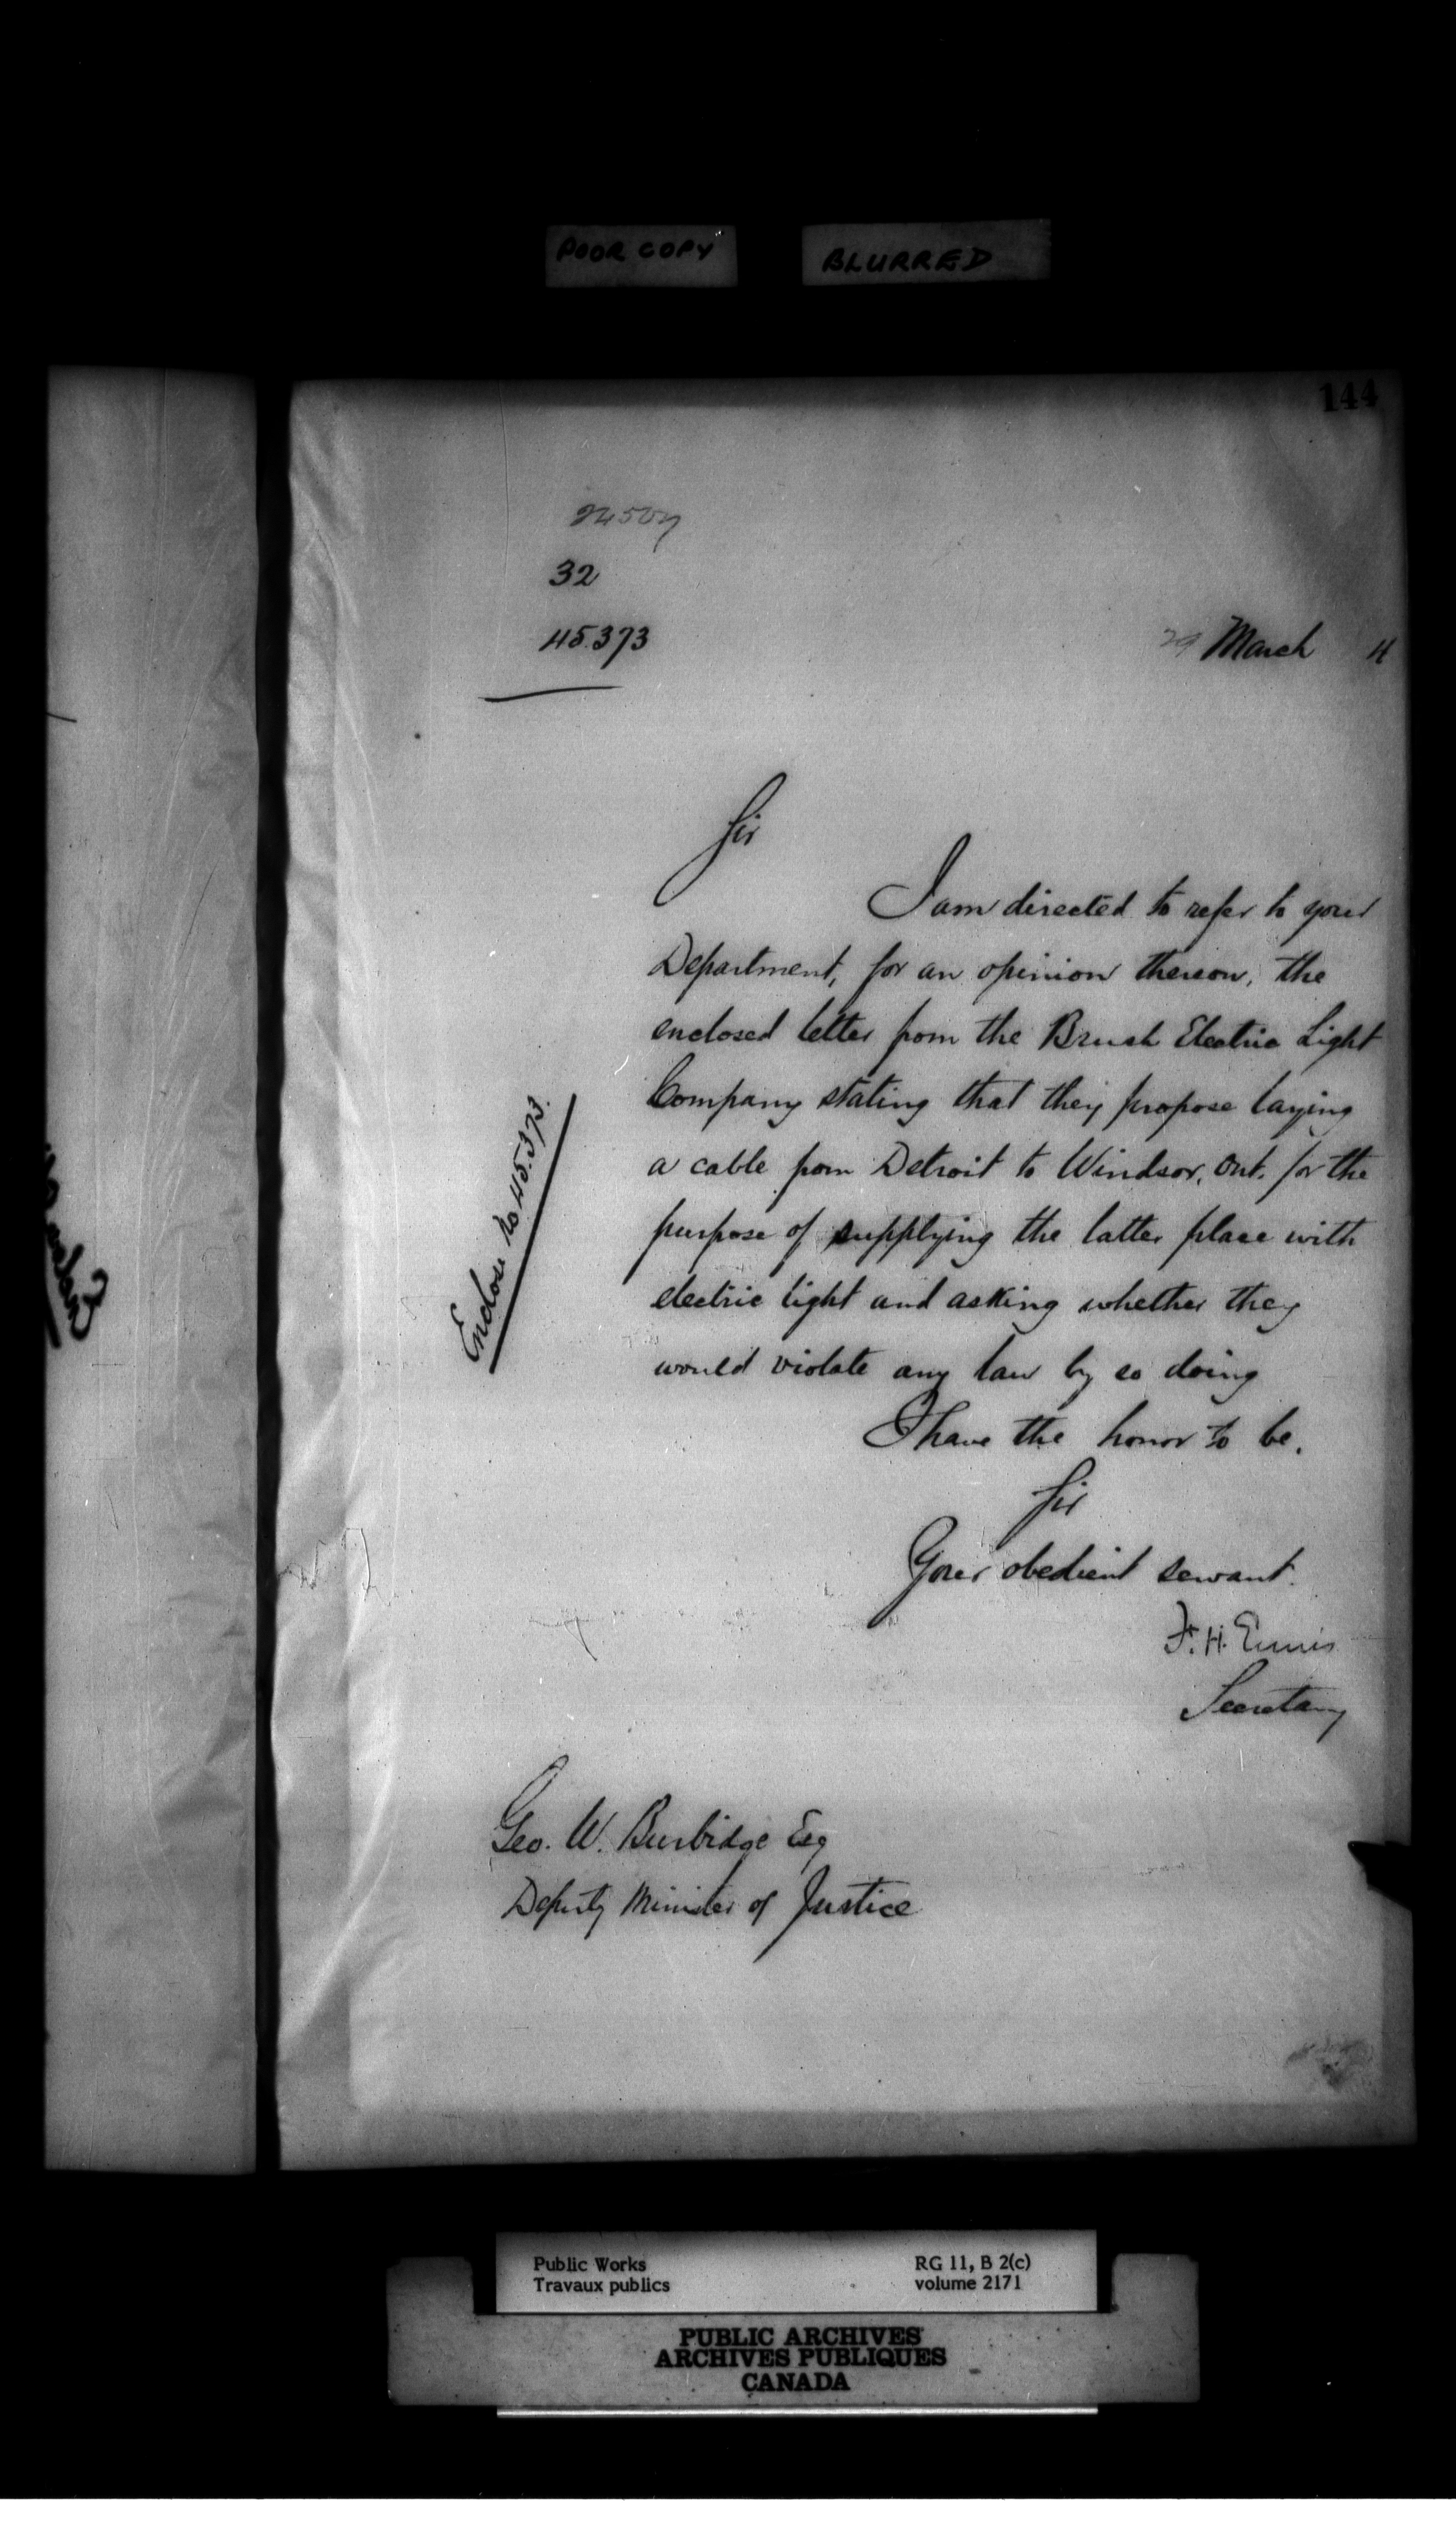 POOR COPY BLURRED
144
24507
32
45.373
29 March 4
Sir
I am directed to refer to your
Department, for an opinion thereon, the
enclosed letter from the Brush Electric Light
Company stating that they propose laying
a cable from Detroit to Windsor, Ont. for the
purpose of supplying the latter place with
electric light and asking whether they
would violate any law by so doing
I have the honor to be,
Sir
Your obedient servant.
F. H. Ennis
Secretary
Enclose No 45.373.
Geo. W. Burbidge Esq
Deputy Minister of Justice
Public Works RG 11, B 2(c)
Travaux publics volume 2171
PUBLIC ARCHIVES
ARCHIVES PUBLIQUES
CANADA